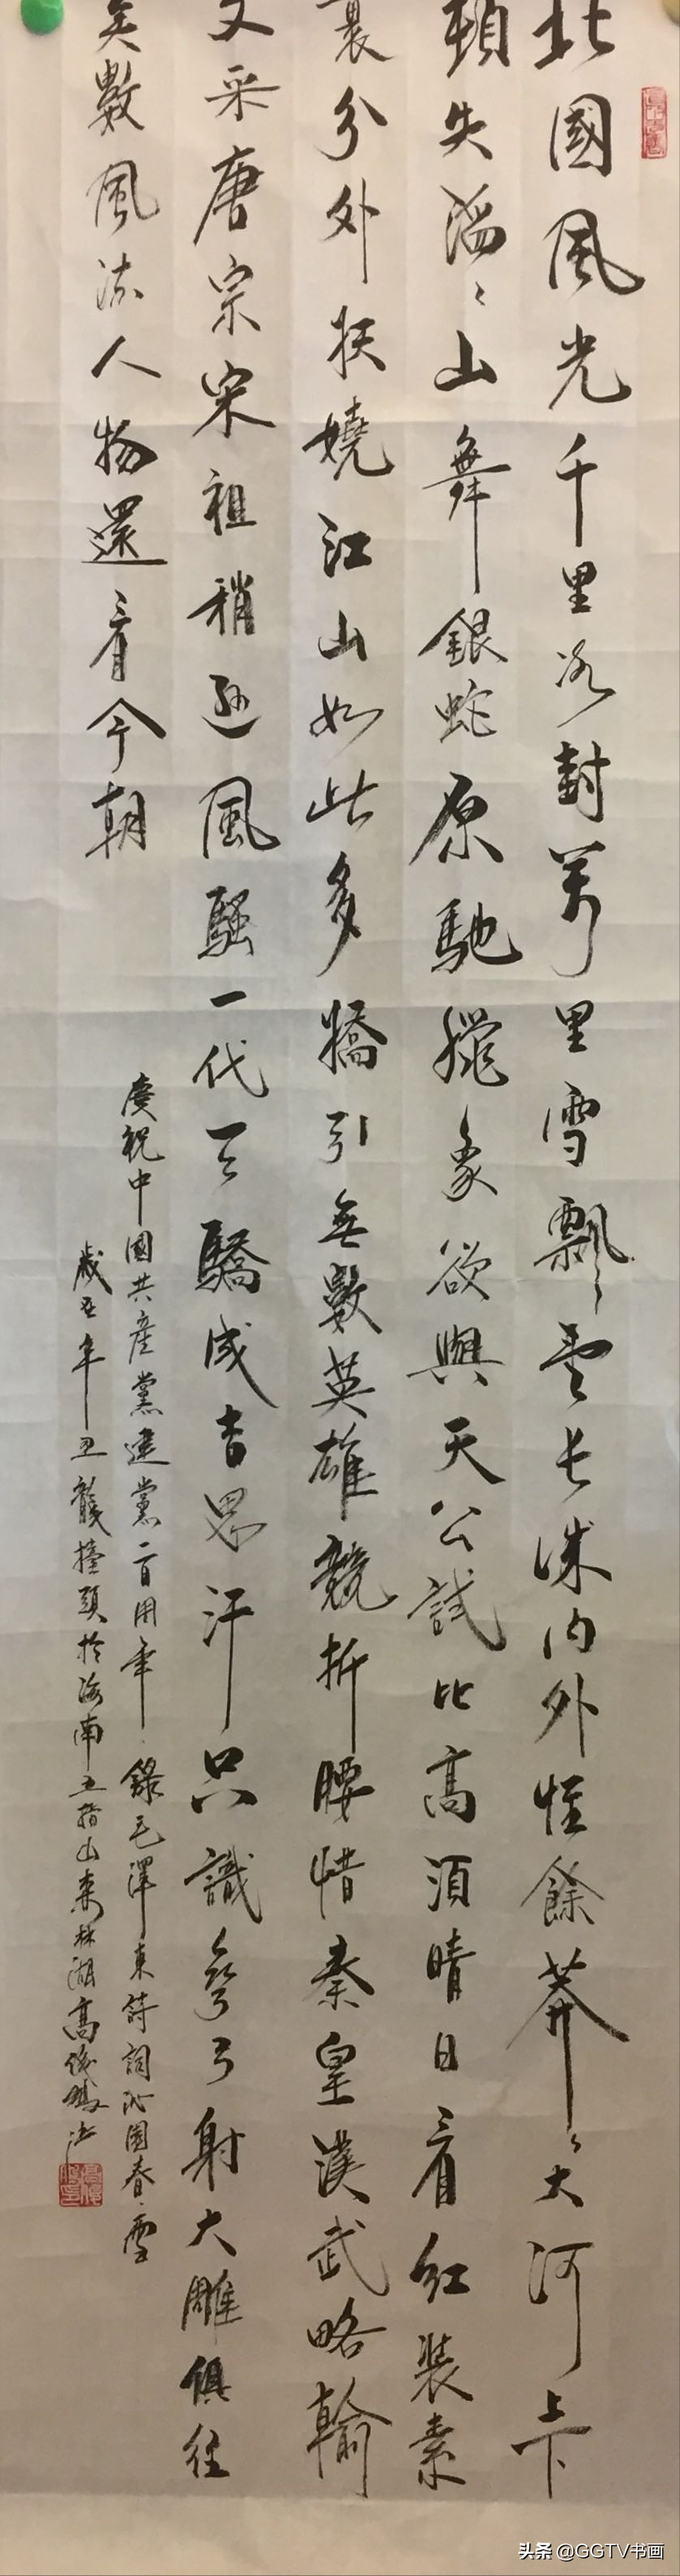 北國風光千里冰封萬里雪飄ミ望长城内外惟餘莽ミ大河上下
頓失滔ミ山舞銀蛇原馳臘象欲與天公試比高須晴日看红裝素
裹分外妖嬈江山如此多嬌引無數英雄競折腰惜秦皇漢武略輸
文采唐宗宋祖稍遜風騷一代天驕成吉思汗只識彎弓射大雕俱往
矣數風流人物還看今朝
慶祝中國共產黨建黨一百周年錄毛澤東詩詞沁園春雪
歲在辛丑龍擡頭於海南五指山森林湖高俊
头条 @GGTV书画